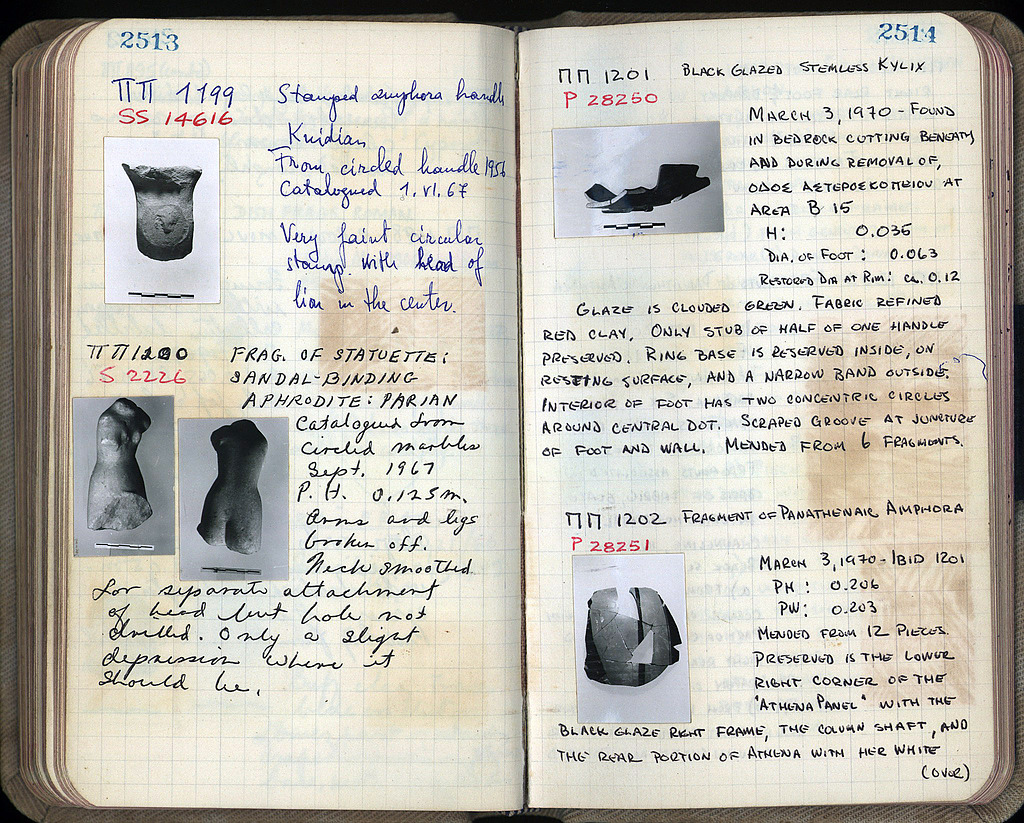 2513
ΠΠ 1199 Stamped amphora handle
SS 14616
Knidian
From circled handle 1956
Catalogued 1.VI.67
Very faint circular
stamp. with head of
lion in the center.
ΠΠ 1200 FRAG. OF STATUETTE:
S 2226 SANDAL-BINDING
APHRODITE: PARIAN
Catalogued from
circled marbles
Sept. 1967
P.H. 0.125m.
Arms and legs
broken off.
Neck smoothed
for separate attachment
of head but hole not
drilled. Only a slight
depression where it
should be.
2514
ΠΠ 1201 BLACK GLAZED STEMLESS KYLIX
P 28250
MARCH 3, 1970 - FOUND
IN BEDROCK CUTTING BENEATH,
AND DURING REMOVAL OF,
ΟΔΟΣ ΑΣΤΕΡΟΣΚΟΠΕΙΟΥ AT
AREA B 15
H: 0.035
DIA. OF FOOT: 0.063
RESTORED DIA AT RIM: ca. 0.12
GLAZE IS CLOUDED GREEN. FABRIC REFINED
RED CLAY. ONLY STUB OF HALF OF ONE HANDLE
PRESERVED. RING BASE IS RESERVED INSIDE, ON
RESTING SURFACE, AND A NARROW BAND OUTSIDE.
INTERIOR OF FOOT HAS TWO CONCENTRIC CIRCLES
AROUND CENTRAL DOT. SCRAPED GROOVE AT JUNCTURE
OF FOOT AND WALL. MENDED FROM 6 FRAGMENTS.
ΠΠ 1202 FRAGMENT OF PANATHENAIC AMPHORA
P 28251
MARCH 3, 1970 - IBID 1201
PH: 0.206
PW: 0.203
MENDED FROM 12 PIECES.
PRESERVED IS THE LOWER
RIGHT CORNER OF THE
"ATHENA PANEL" WITH THE
BLACK GLAZE RIGHT FRAME, THE COLUMN SHAFT, AND
THE REAR PORTION OF ATHENA WITH HER WHITE
(OVER)